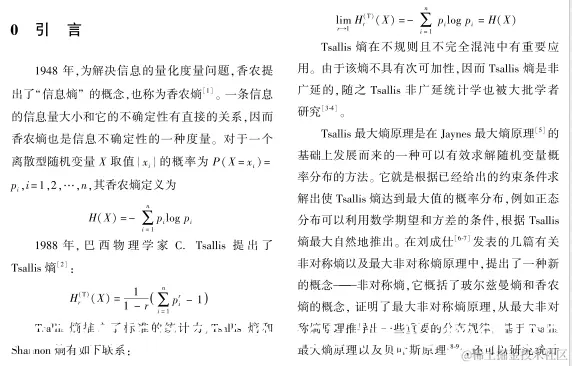 0 引 言
1948 年,为解决信息的量化度量问题,香农提
出了“信息熵”的概念,也称为香农熵[1]。一条信息
的信息量大小和它的不确定性有直接的关系,因而
香农熵也是信息不确定性的一种度量。对于一个
离散型随机变量 X 取值{x_i}的概率为 P(X=x_i)=
p_i,i=1,2,…,n,其香农熵定义为
H(X)=- ∑_{i=1}^{n} p_i log p_i
1988 年,巴西物理学家 C. Tsallis 提出了
Tsallis 熵[2]:
H_r^{(T)}(X)= 1/(1-r) (∑_{i=1}^{n} p_i^r - 1)
Tsallis 熵推广了标准的统计力,Tsallis 熵和
Shannon 熵有如下联系:
lim_{r→1} H_r^{(T)}(X)=- ∑_{i=1}^{n} p_i log p_i = H(X)
Tsallis 熵在不规则且不完全混沌中有重要应
用。由于该熵不具有次可加性,因而 Tsallis 熵是非
广延的,随之 Tsallis 非广延统计学也被大批学者
研究[3-4]。
Tsallis 最大熵原理是在 Jaynes 最大熵原理[5]的
基础上发展而来的一种可以有效求解随机变量概
率分布的方法。它就是根据已经给出的约束条件求
解出使 Tsallis 熵达到最大值的概率分布,例如正态
分布可以利用数学期望和方差的条件,根据 Tsallis
熵最大自然地推出。在刘成仕[6-7]发表的几篇有关
非对称熵以及最大非对称熵原理中,提出了一种新
的概念——非对称熵,它概括了玻尔兹曼熵和香农
熵的概念,证明了最大非对称熵原理,从最大非对
称熵原理推导出一些重要的分布规律。基于 Tsallis
最大熵原理以及贝叶斯原理[8-9],还可以研究统计
@稀土掘金技术社区